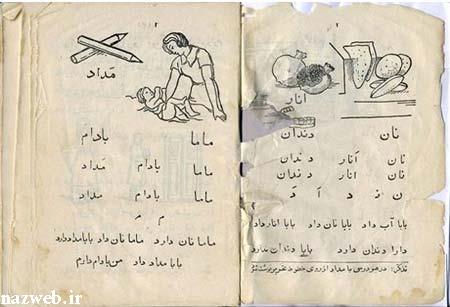 ۲
انار
نان دندان
نان انار دندان
نان انار دندان
ن د آ د
بابا آب داد بابا نان داد بابا انار داد
دارا دندان دارد بابا دندان ندارد
تذکر: در هر درسی با مداد از روی خطوط
مداد
ماما بادام
ماما بادام مداد
ماما بادام مداد
م م
ماما نان دارد ماما نان داد بابا مداد دارد
بابا مداد داد من بادام دارم
nazweb.ir